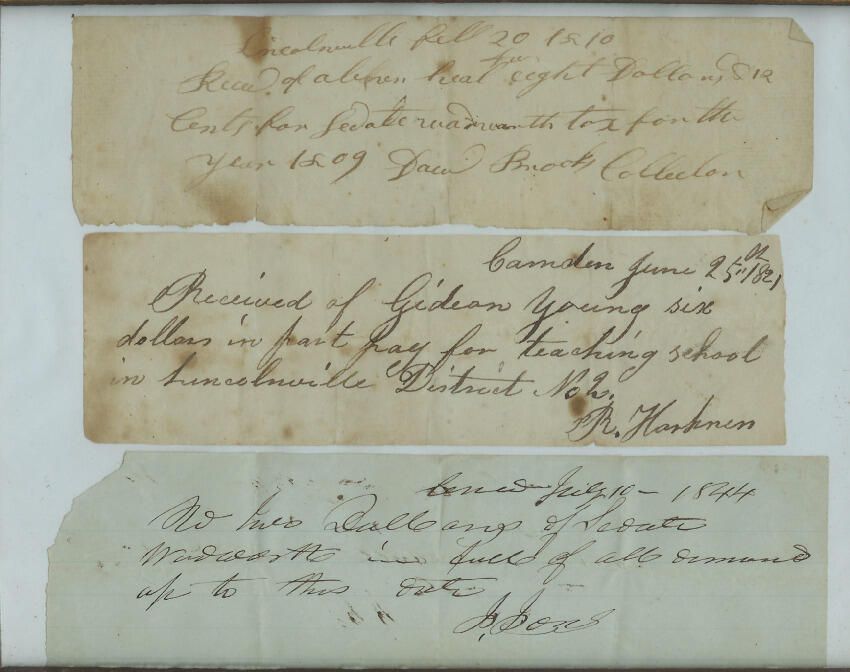 Lincolnville Feb 20 1810
Recd of abner heal eight Dollars & 12
Cents for Sedate wadsworth tax for the
year 1809 Brooks Collector
Camden June 25th 1821
Received of Gideon Young six
dollars in part pay for teaching school
in Lincolnville District No 2.
R. Harkness
July 10 - 1844
two Dollars of Sedate
Wadworth in full of all demand
up to this date